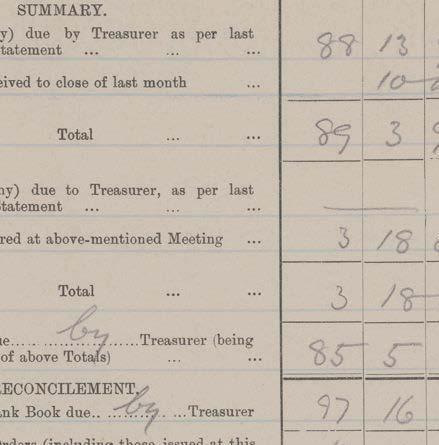 SUMMARY.
y) due by Treasurer as per last
tatement ... ... ... 88 13
eived to close of last month ... 10
Total ... ... 89 3
ny) due to Treasurer, as per last
Statement ... ... ...
red at above-mentioned Meeting ... 3 18
Total ... ... 3 18
ue............by............Treasurer (being
of above Totals) ... ... 85 5
RECONCILEMENT.
ank Book due.. by ...Treasurer 97 16
Orders (including those issued at this